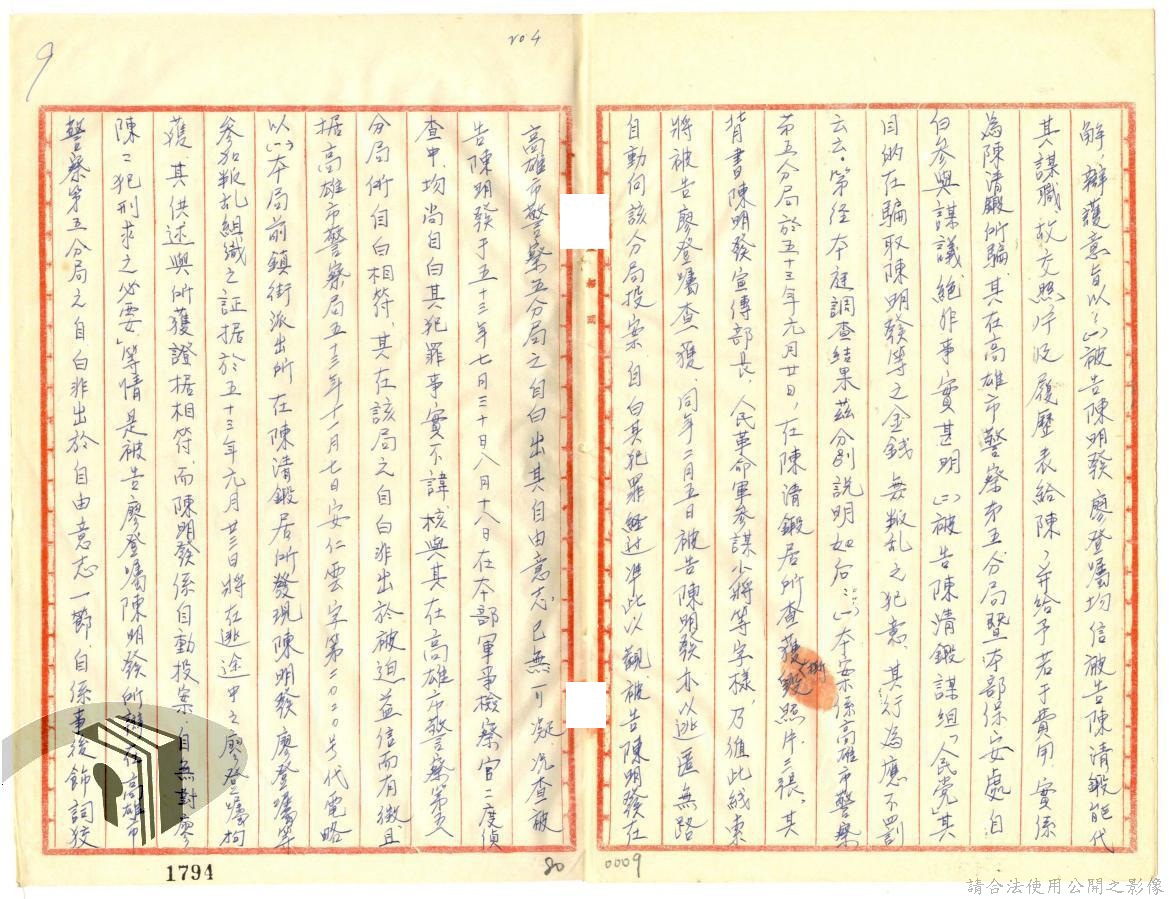 204
9
解,辯護意旨以:(一)被告陳明發 廖登囑均信被告陳清鍛能代
其謀職,故交照片及履歷表給陳、并給予若干費用,實係
為陳清鍛所騙,其在高雄市警察第五分局暨本部保安處自
白參與謀議絕非事實甚明(二)被告陳清鍛謀組「人民党」其
目的在騙取陳明發等之金錢 毫無叛乱之犯意,其行為應不罰
云云。第經本庭調查結果茲分別說明如后:(一)本案係高雄市警察
第五分局於五十三年元月廿日,在陳清鍛居所查獲毀照片三張,其
背書陳明發宣傳部長,人民革命軍參謀少將等字樣,乃循此綫索
將被告廖登囑查獲,同年二月五日被告陳明發亦以逃匿無路
自動向該分局投案 自白其犯罪經过準此以觀,被告陳明發在
高雄市警察五分局之自白出其自由意志已無可凝,况查被
告陳明發于五十三年七月三十日八月十八日在本部軍事檢察官二度偵
查中,均尚自白其犯罪事實不諱核與其在高雄市警察第五
分局所自白相符,其在該局之自白非出於被迫益信而有徵且
据高雄市警察局五十三年十一月七日安仁雲字第二〇二〇号代電略
以(一)本局前鎮街派出所在陳清鍛居所發現陳明發 廖登囑等
參加叛乱組織之証据於五十三年元月廿三日將在逃途中之廖登囑拘
獲,其供述與所獲證据相符,而陳明發係自動投案,自無對廖
陳二犯刑求之必要」等情是被告廖登囑陳明發所辯在高雄市
警察第五分局之自白非出於自由意志一節,自係事後飾詞狡
1794
80
0009
請合法使用公開之影像